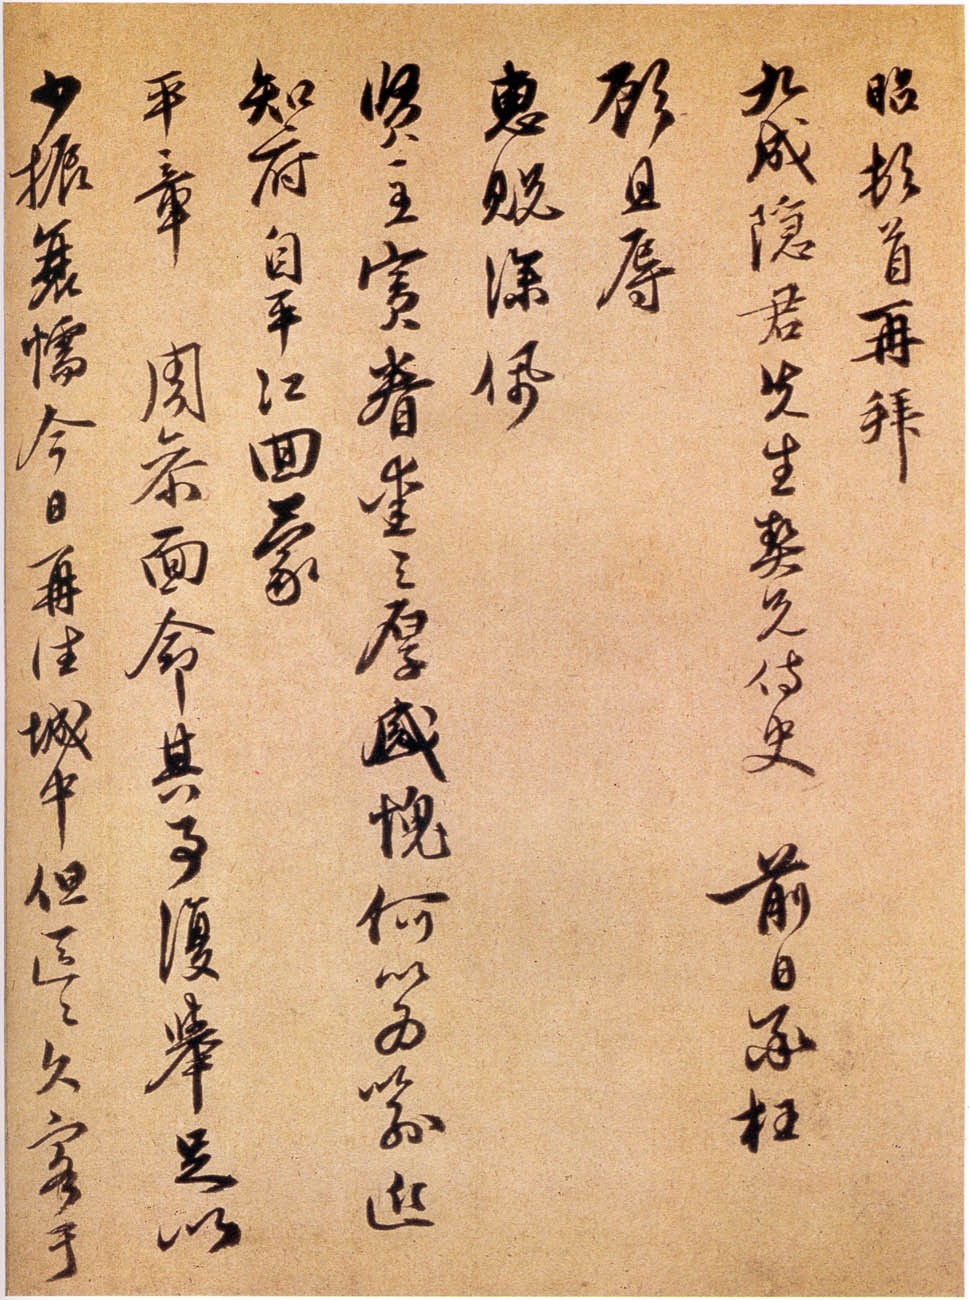 昭頓首再拜
九成隱君先生契兄侍史 前日承枉
顧且辱
惠貺深佩
賢主賓眷聚之厚感愧何以為喻近
知府自平江回蒙
平章 周參面命其事復舉足以
少振羸懦今日再往城中但區區久客于